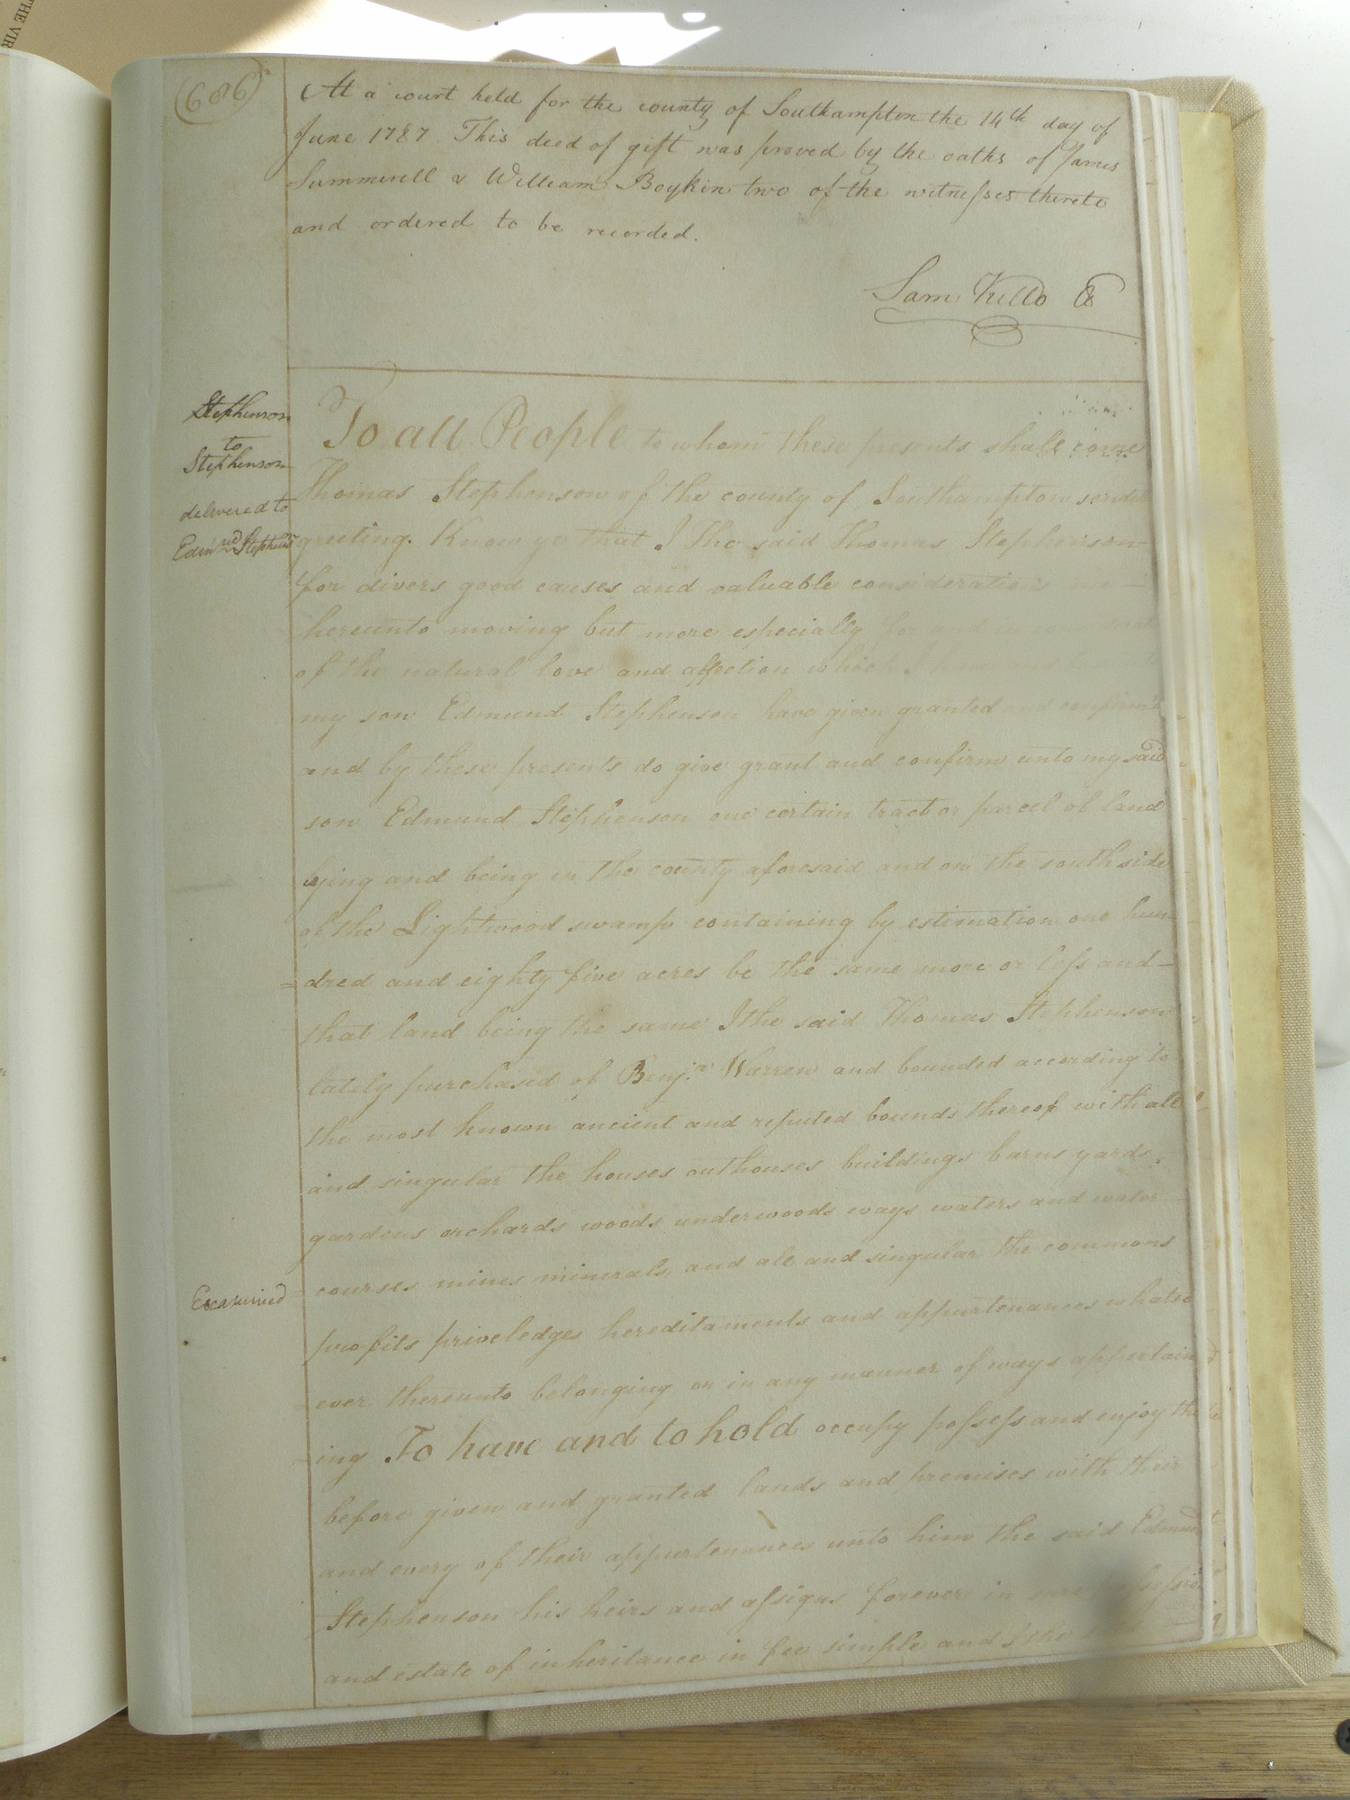 THE VIR
(686)
At a court held for the county of Southampton the 14th day of
June 1787 This deed of gift was proved by the oaths of James
Summerell & William Boykin two of the witnesses thereto
and ordered to be recorded.
Sam Kello
Stephenson
to
Stephenson
delivered to
Edmd Stephens
To all People to whom these presents shall come
Thomas Stephenson of the county of Southampton
greeting. Know ye that I the said Thomas Stephenson
for divers good causes and valuable considerations
hereunto moving but more especially for and in
of the natural love and affection which I
my son Edmund Stephenson have given granted and confirm'd
and by these presents do give grant and confirm unto my said
son Edmund Stephenson one certain tract or parcel of land
lying and being in the county aforesaid and on the south side
of the Lightwood swamp containing by estimation one hun
=dred and eighty five acres be the same more or less and
that land being the same I the said Thomas Stephenson
lately purchased of Benj.a Warren and bounded according to
the most known ancient and reputed bounds thereof with all
and singular the houses outhouses buildings barns yards
gardens orchards woods underwoods ways waters and water
courses mines minerals and all and singular the commons
Examined
profits priveledges hereditaments and appurtenances whatso
ever thereunto belonging or in any manner of ways appertain
ing To have and to hold occupy possess and enjoy the
before given and granted lands and premises with their
and every of their appurtenances unto him the said Edmund
Stephenson his heirs and assigns forever in
and estate of inheritance in fee simple and I the